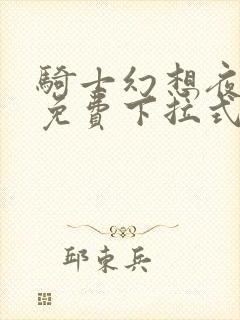 騎士幻想夜
免費下拉式
邱東兵